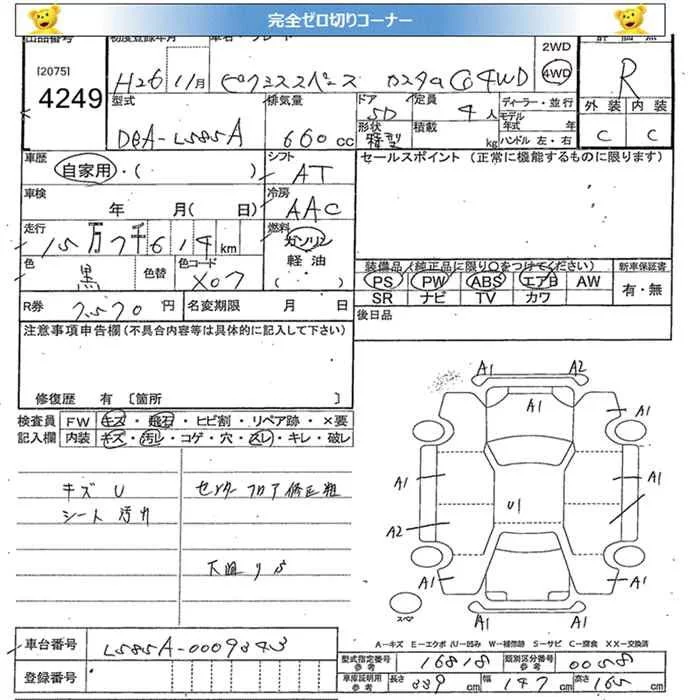 完全ゼロ切りコーナー
出品番号 初度登録年月 車名・グレード 2WD 評価点
[2075] H26 11月 ピクシススペース カスタムG 4WD 4WD R
4249 型式 排気量 ドア 定員 ディーラー・並行 外装 内装
DBA-L585A 660cc 5D 4人 モデル年式 年 C C
形状 特型 積載 kg ハンドル 左・右
車歴 シフト セールスポイント (正常に機能するものに限ります)
自家用・( ) AT
車検 冷房
年 月( 日) AAC
走行 燃料
15万7千614km ガソリン
色 色替 色コード 軽油 装備品(純正品に限り○をつけてください) 新車保証書
黒 X07 ( ) PS PW ABS エアB AW 有・無
R券 円 名変期限 月 日 SR ナビ TV カワ
注意事項申告欄(不具合内容等は具体的に記入して下さい) 後日品
修復歴 有〔箇所 〕
検査員 FW キズ・飛石・ヒビ割・リペア跡・×要
記入欄 内装 キズ・汚レ・コゲ・穴・スレ・キレ・破レ
A1 A2
A1 A1
キズ U センターフロア修正粗 A1 A1
シート汚れ U1
A2
A1 A1
スペア A1 A1
A-キズ E-エクボ U-凹み W-補修跡 S-サビ C-腐食 XX-交換済
車台番号 L585A-0009343
型式指定番号 参考 16818 類別区分番号 参考 0058
登録番号 車庫証明用 参考 長さ 339 cm 幅 147 cm 高さ 165 cm